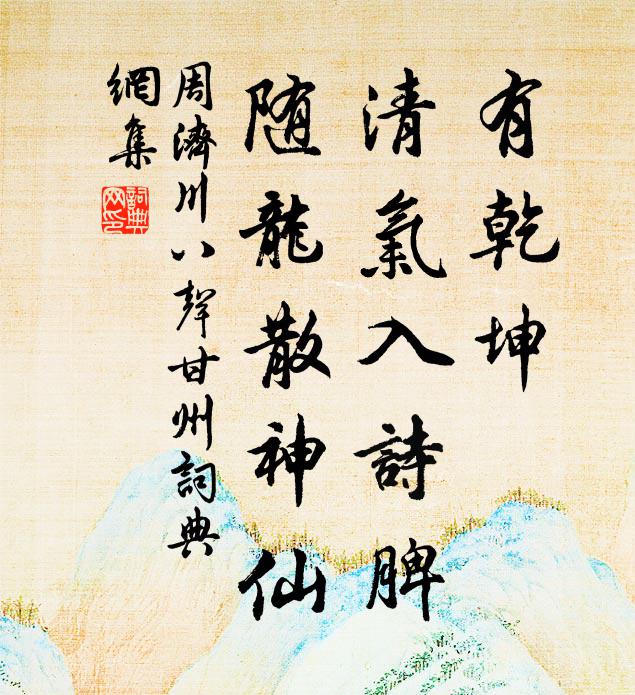 有乾坤
清氣入詩脾
随龍散神仙
周濟川八聲甘州詞典
網集
詞典
网印